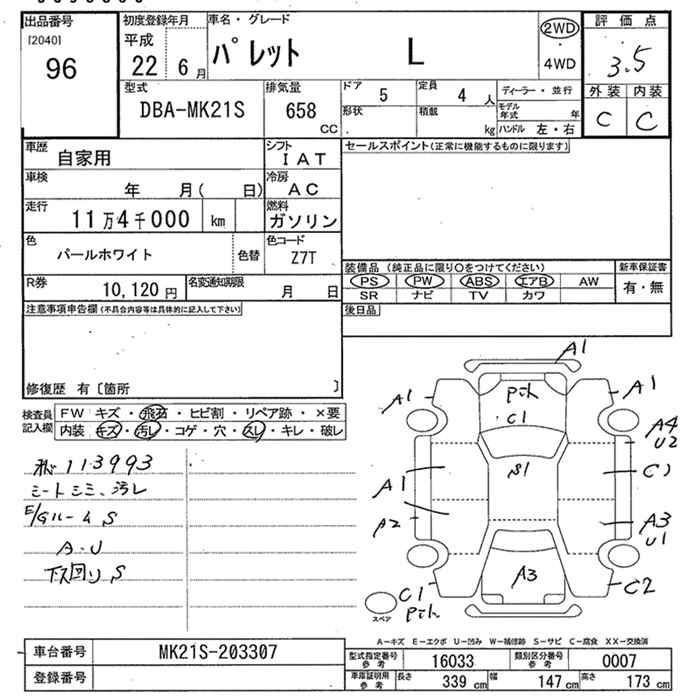 出品番号
[2040]
96
初度登録年月
平成
22 6月
車名・グレード
パレット L
2WD
・
4WD
評価点
3.5
外装 内装
C C
型式
DBA-MK21S
排気量
658
CC
ドア 5
定員 4 人
形状
積載 kg
ディーラー・並行
モデル年式 年
ハンドル 左・右
車歴
自家用
シフト
IAT
車検
年 月( 日)
冷房
AC
走行
11万4千000 km
燃料
ガソリン
色
パールホワイト
色替
色コード
Z7T
R券
10,120 円
名変通知期限
月 日
セールスポイント(正常に機能するものに限ります)
装備品 (純正品に限り○をつけてください)
新車保証書
PS PW ABS エアB AW
SR ナビ TV カワ
有・無
後日品
注意事項申告欄(不具合内容等は具体的に記入して下さい)
修復歴 有〔箇所 〕
検査員記入欄
FW キズ・飛石・ヒビ割・リペア跡・×要
内装 キズ・汚レ・コゲ・穴・スレ・キレ・破レ
113993
シートシミ、汚レ
E/Gルーム S
A.U
下回り S
A1
A1
A1
Pチル
C1
A4
U2
S1
C1
A1
A2
A3
U1
A3
C1
Pチル
C2
スペア
A-キズ E-エクボ U-凹み W-補修跡 S-サビ C-腐食 XX-交換済
車台番号
MK21S-203307
登録番号
型式指定番号
参考
16033
類別区分番号
参考
0007
車庫証明用
参考
長さ 339 cm
幅 147 cm
高さ 173 cm